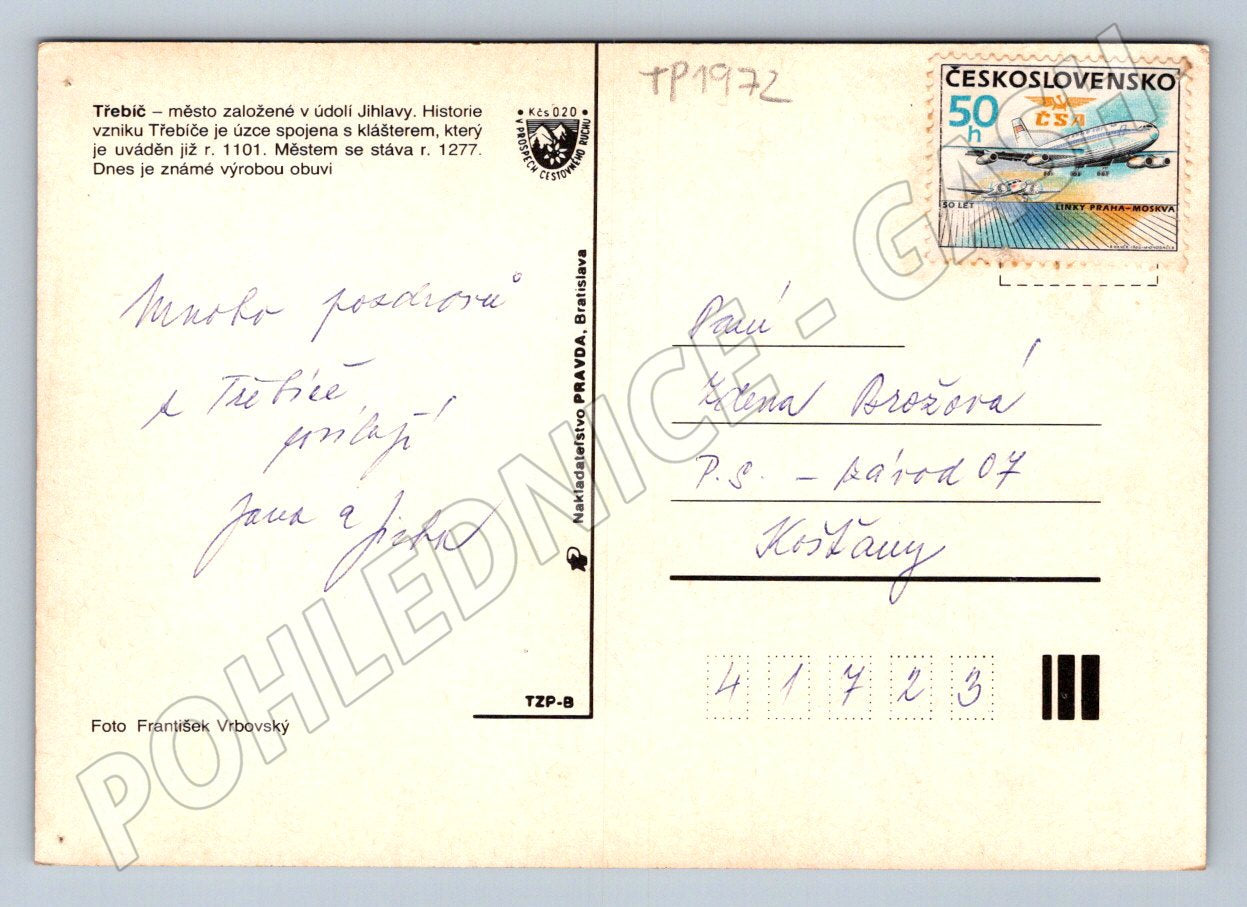 Třebíč – město založené v údolí Jihlavy. Historie
vzniku Třebíče je úzce spojena s klášterem, který
je uváděn již r. 1101. Městem se stáva r. 1277.
Dnes je známé výrobou obuvi
• Kčs 020 •
V PROSPECH CESTOVNÉHO RUCHU
TP1972
ČESKOSLOVENSKO
50
h
ČSA
50 LET
LINKY PRAHA–MOSKVA
Mnoho pozdravů
z Třebíče
posílají
Jana a Jirka
Nakladateľstvo PRAVDA, Bratislava
TZP-B
Foto František Vrbovský
Paní
Zdena Brožová
P.S. – závod 07
Košťany
41723
POHLEDNICE - GMSH